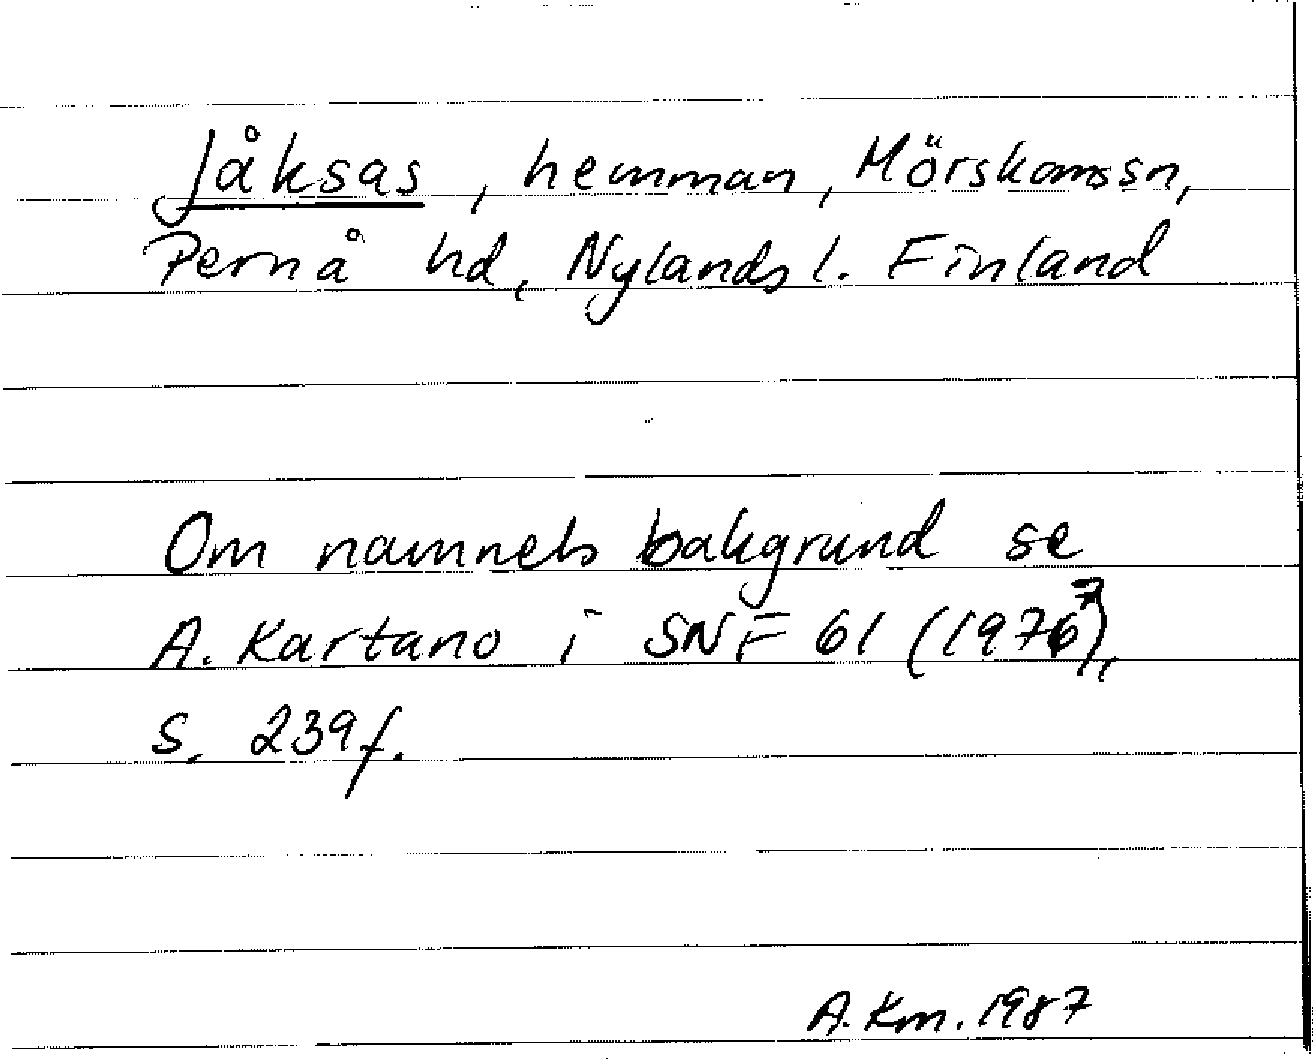 Jåksas, hemman, Mörskomssn,
Pernå hd, Nylands l. Finland
Om namnets bakgrund se
A. Kartano i SNF 61 (1977),
s. 239f.
A. Km. 1987